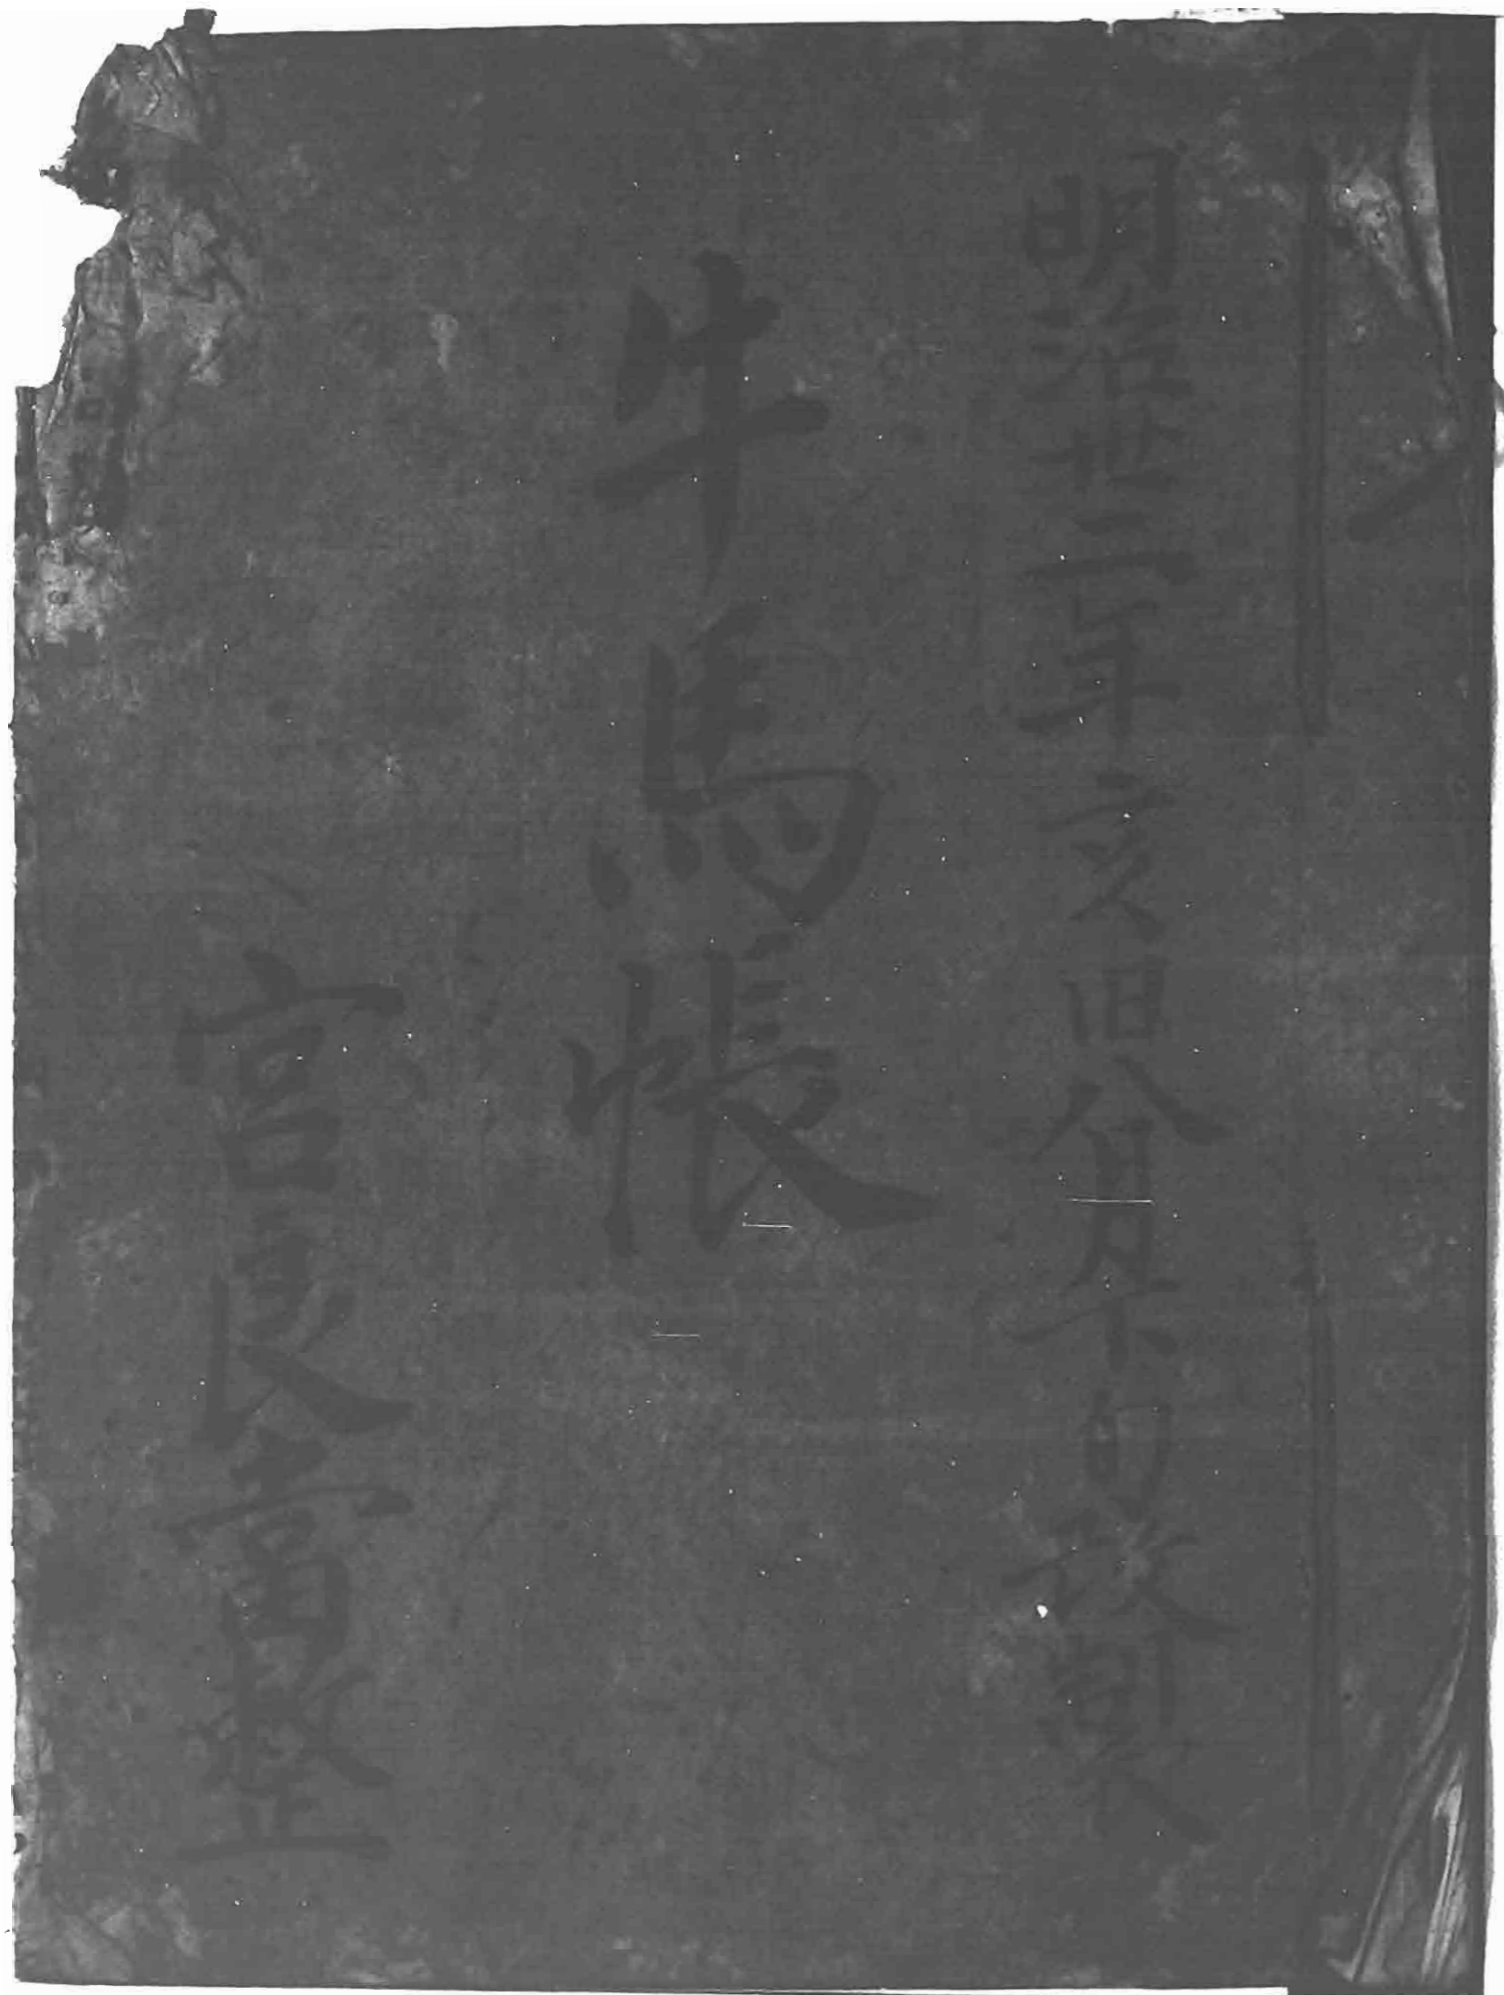 明治卅二年亥旧八月下旬改
牛馬帳
宮良當整